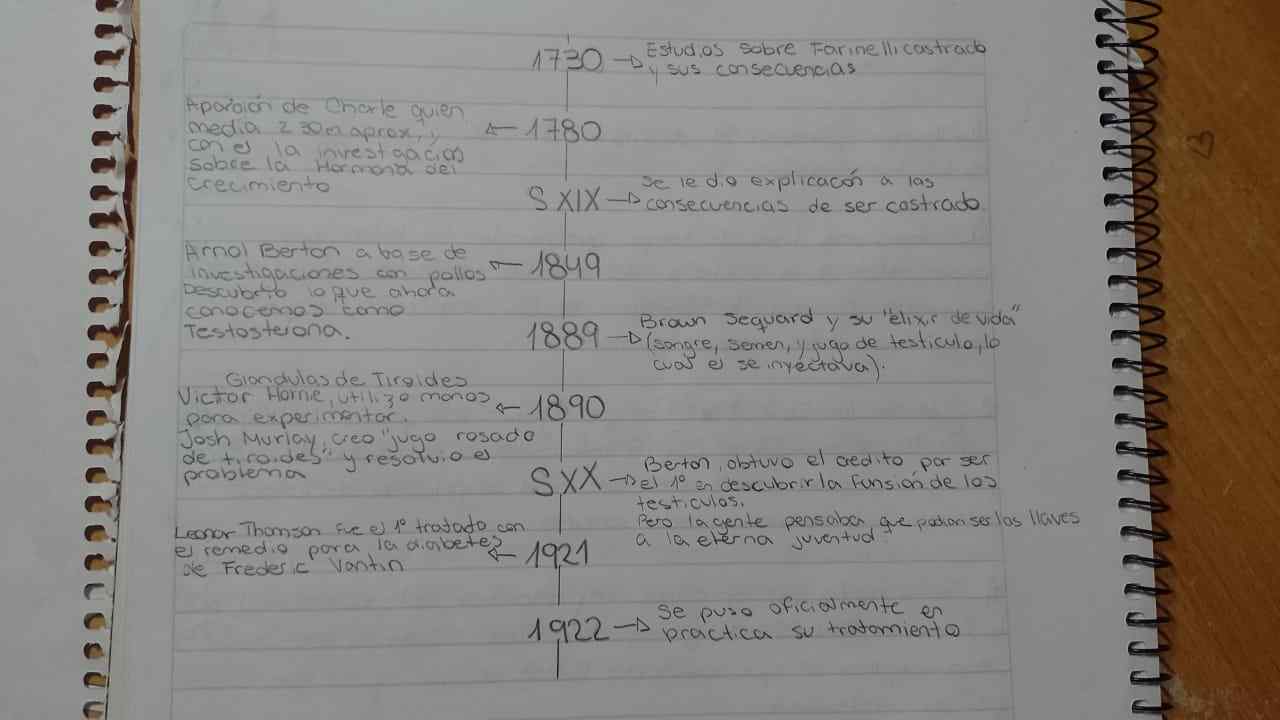 1730 → Estudios sobre Farinelli castrado
y sus consecuencias
Aparición de Charle quien
media 2 30m aprox, y
con el la investigación
sobre la Hormona del
crecimiento
← 1780
SXIX → Se le dio explicación a las
consecuencias de ser castrado
Arnol Berton a base de
investigaciones con pollos
Descubrió lo que ahora
conocemos como
Testosterona.
← 1849
1889 → Brown Sequard y su "elixir de vida"
(sangre, semen, y jugo de testiculo, lo
cual el se inyectava).
Glandulas de Tiroides
Victor Horne, utilizo monos
para experimentar.
Josh Murlay, creo "jugo rosado
de tiroides" y resolvio el
problema
← 1890
SXX → Berton, obtuvo el credito por ser
el 1º en descubrir la funsión de los
testiculos.
Pero la gente pensaba, que podian ser las llaves
a la eterna juventud.
Leonor Thomson fue el 1º tratado con
el remedio para la diabetes
de Frederic Vantin
← 1921
1922 → Se puso oficialmente en
practica su tratamiento